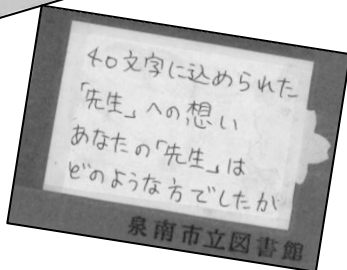 40文字に込められた
「先生」への想い
あなたの「先生」は
どのような方でしたか
泉南市立図書館